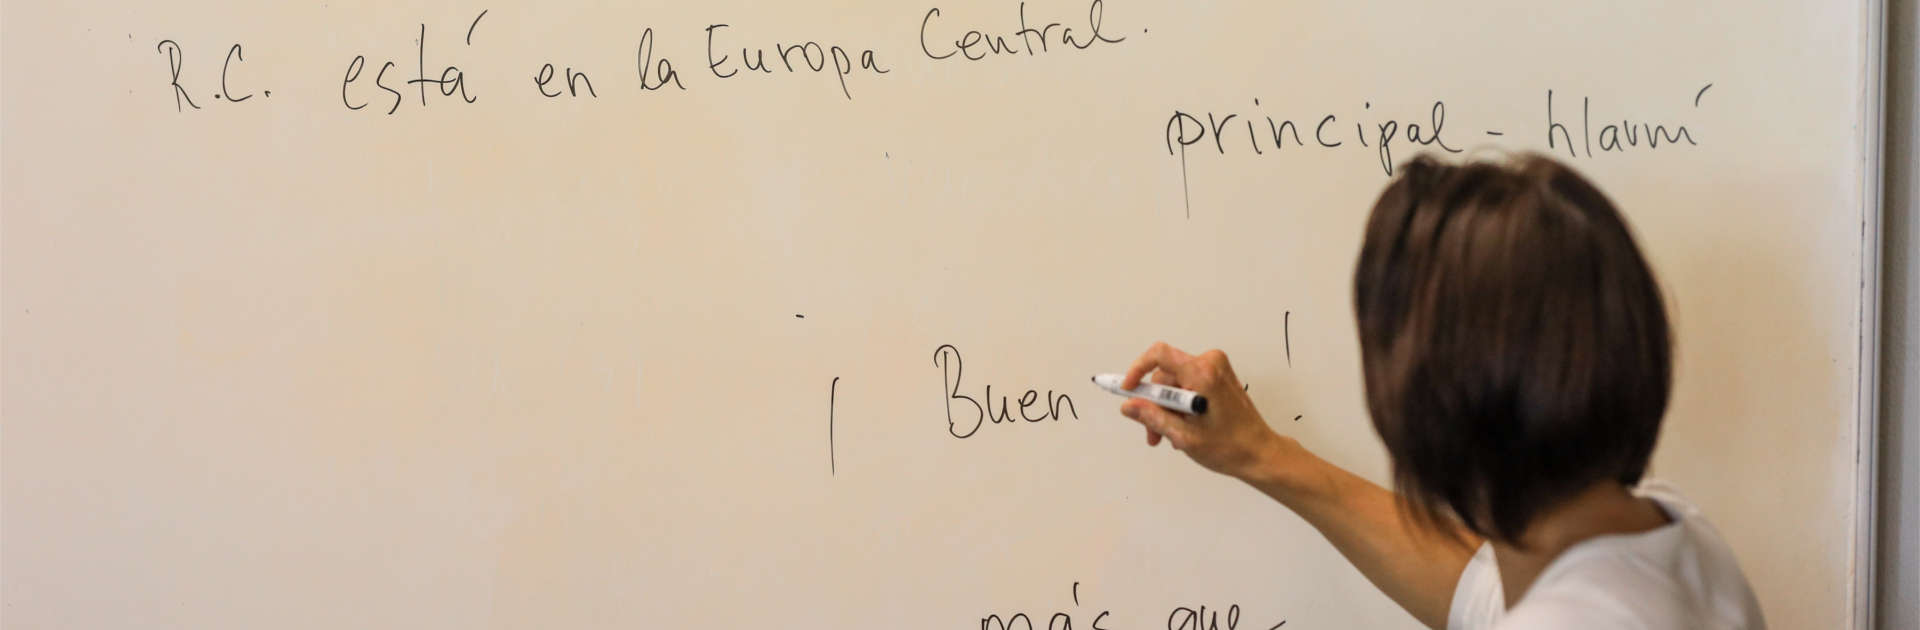 R.C. está en la Europa Central.
principal - hlavní
¡ Buen !
más que